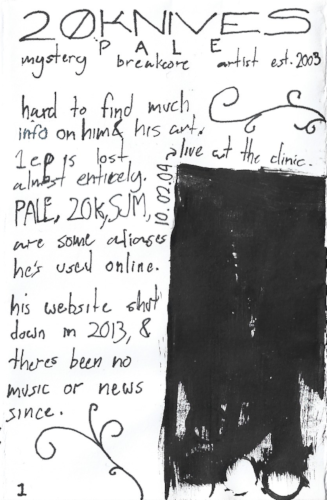 20KNIVES
PALE
mystery breakcore artist est. 2003
hard to find much
info on him & his art.
1 ep is lost
almost entirely.
PALE, 20K, SJM,
are some aliases
he's used online.
his website shut
down in 2013, &
theres been no
music or news
since.
live at the clinic.
10.02.04
1